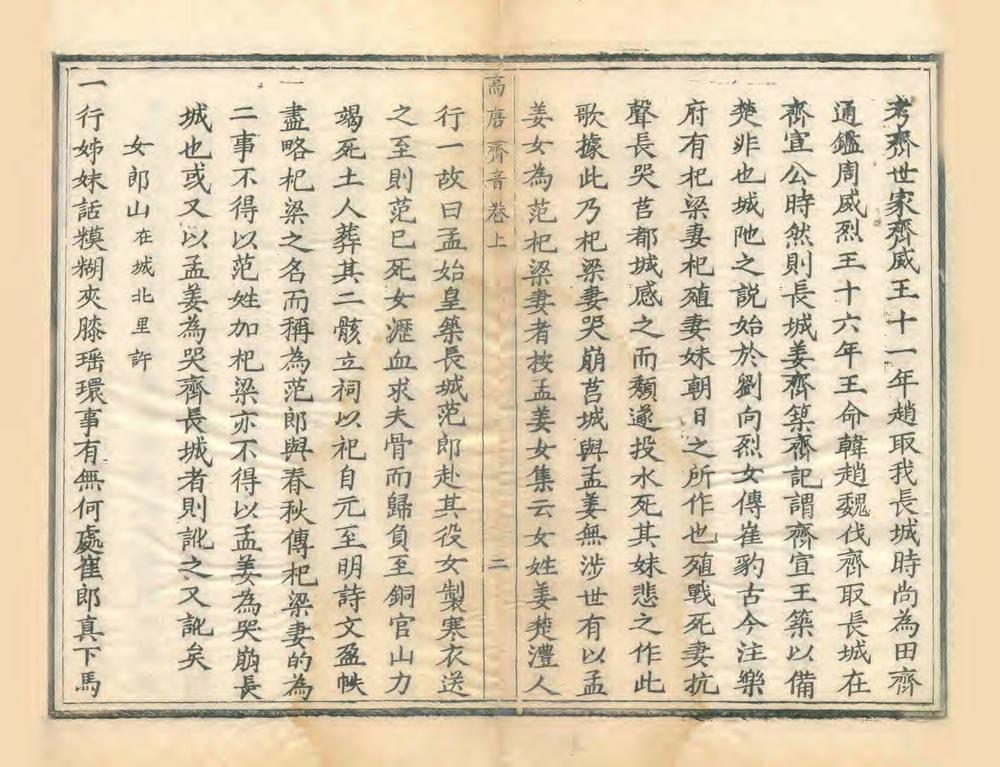 考齊世家齊威王十一年趙取我長城時尚為田齊
通鑑周威烈王十六年王命韓趙魏伐齊取長城在
齊宣公時然則長城姜齊築齊記謂齊宣王築以備
楚非也城阤之説始於劉向烈女傳崔豹古今注樂
府有杞梁妻杞殖妻妹朝日之所作也殖戰死妻抗
聲長哭莒都城感之而頽遂投水死其妹悲之作此
歌據此乃杞梁妻哭崩莒城與孟姜無涉世有以孟
姜女為范杞梁妻者按孟姜女集云女姓姜楚澧人
高唐齊音卷上 二
行一故曰孟始皇築長城范郎赴其役女製寒衣送
之至則范已死女瀝血求夫骨而歸負至銅官山力
竭死土人葬其二骸立祠以祀自元至明詩文盈帙
盡略杞梁之名而稱為范郎與春秋傳杞梁妻的為
二事不得以范姓加杞梁亦不得以孟姜為哭崩長
城也或又以孟姜為哭齊長城者則訛之又訛矣
女郎山在城北里許
一行姊妹話糢糊夾膝瑶環事有無何處崔郎真下馬